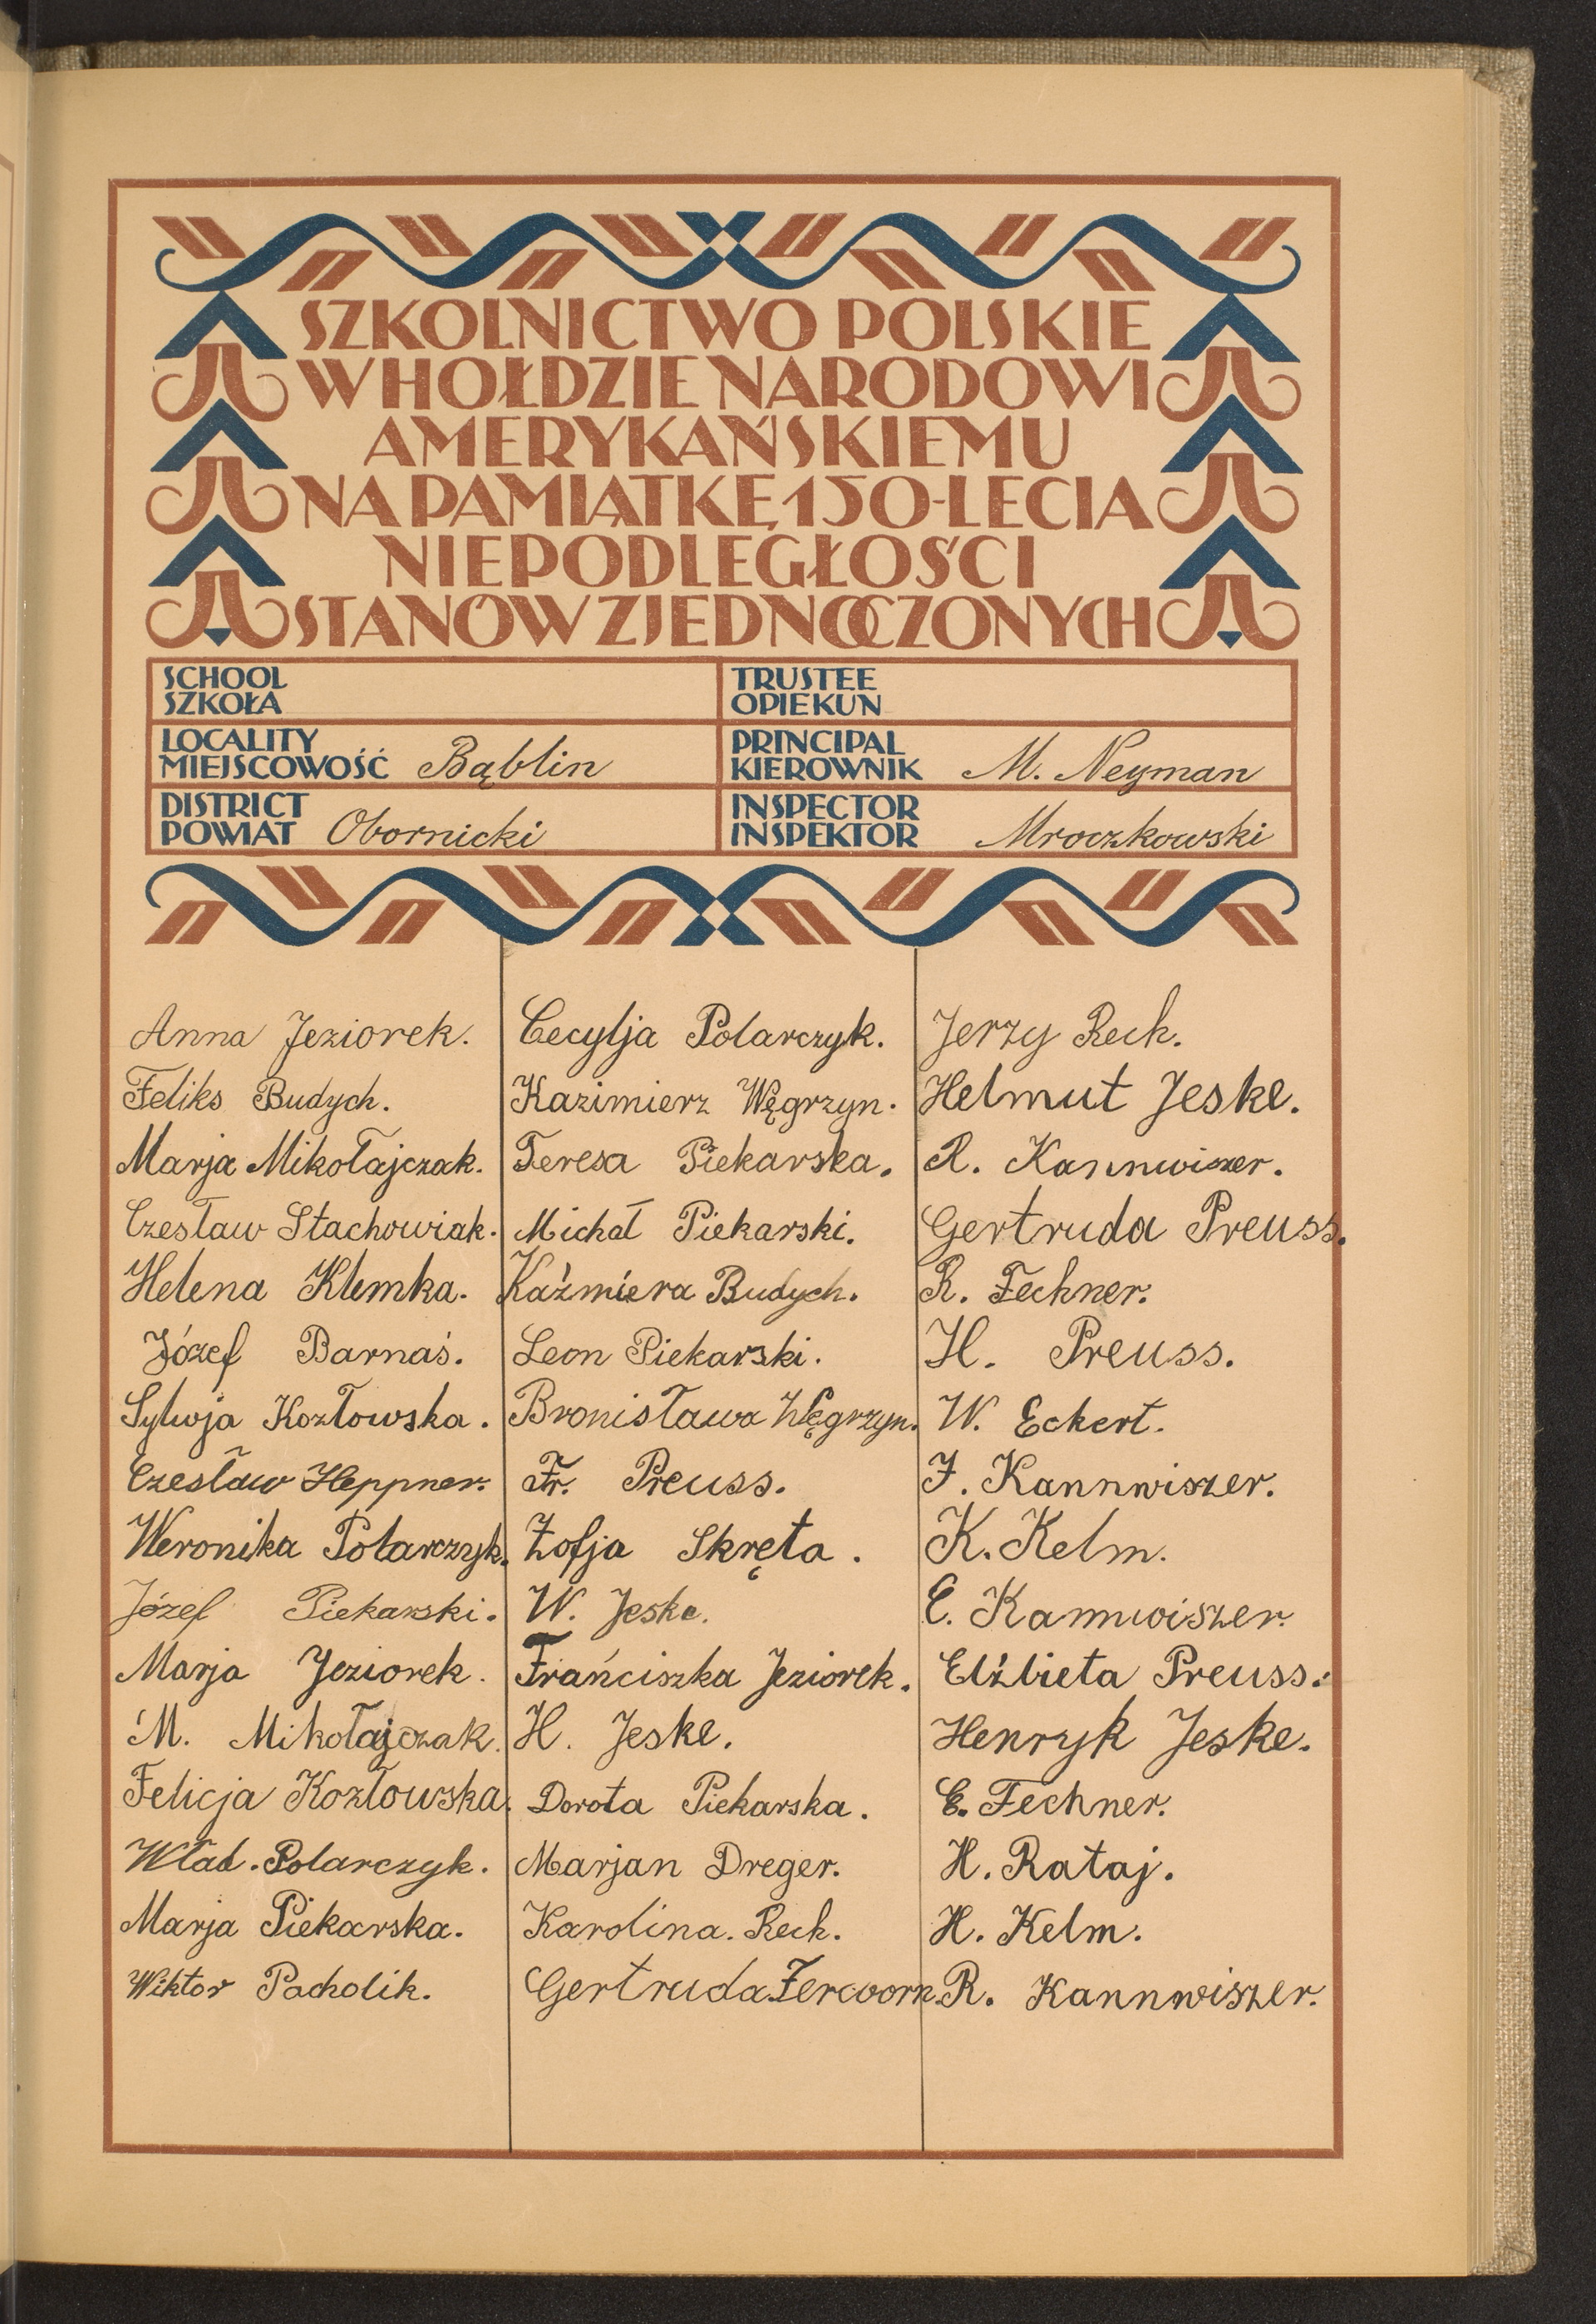 SZKOLNICTWO POLSKIE
W HOŁDZIE NARODOWI
AMERYKAŃSKIEMU
NA PAMIĄTKĘ 150-LECIA
NIEPODLEGŁOŚCI
STANÓW ZJEDNOCZONYCH
SCHOOL
SZKOŁA
TRUSTEE
OPIEKUN
LOCALITY
MIEJSCOWOŚĆ Bąblin
PRINCIPAL
KIEROWNIK M. Neyman
DISTRICT
POWIAT Obornicki
INSPECTOR
INSPEKTOR Mroczkowski
Anna Jeziorek.
Feliks Budych.
Marja Mikołajczak.
Czesław Stachowiak.
Helena Klemka.
Józef Barnaś.
Sylwja Kozłowska.
Czesław Heppner.
Weronika Polarczyk.
Józef Piekarski.
Marja Jeziorek.
M. Mikołajczak.
Felicja Kozłowska.
Wład. Polarczyk.
Marja Piekarska.
Wiktor Pacholik.
Cecylja Polarczyk.
Kazimierz Węgrzyn.
Teresa Piekarska.
Michał Piekarski.
Kaźmiera Budych.
Leon Piekarski.
Bronisława Węgrzyn.
Fr. Preuss.
Zofja Skręta.
W. Jeske.
Frańciszka Jeziorek.
H. Jeske.
Dorota Piekarska.
Marjan Dreger.
Karolina. Reck.
Gertruda
Jerzy Reck.
Helmut Jeske.
R. Kannwiszer.
Gertruda Preuss.
R. Fechner.
H. Preuss.
W. Eckert.
J. Kannwiszer.
K. Kelm.
E. Kannwiszer.
Elżbieta Preuss.
Henryk Jeske.
E. Fechner.
H. Rataj.
H. Kelm.
R. Kannwiszer.